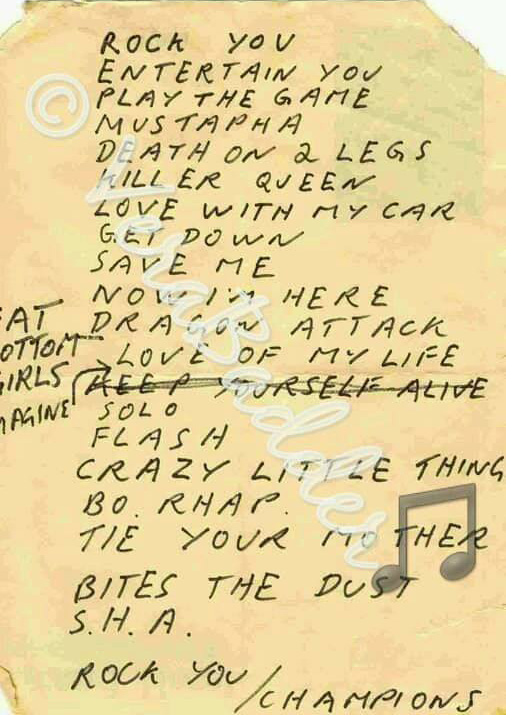 ROCK YOU
ENTERTAIN YOU
PLAY THE GAME
MUSTAPHA
DEATH ON 2 LEGS
KILLER QUEEN
LOVE WITH MY CAR
GET DOWN
SAVE ME
NOW I'M HERE
DRAGON ATTACK
LOVE OF MY LIFE
KEEP YOURSELF ALIVE
SOLO
FLASH
CRAZY LITTLE THING
BO. RHAP.
TIE YOUR MOTHER
BITES THE DUST
S.H.A.
ROCK YOU/CHAMPIONS
EAT
OTTOM
GIRLS
MAGINE
© VeraBadder